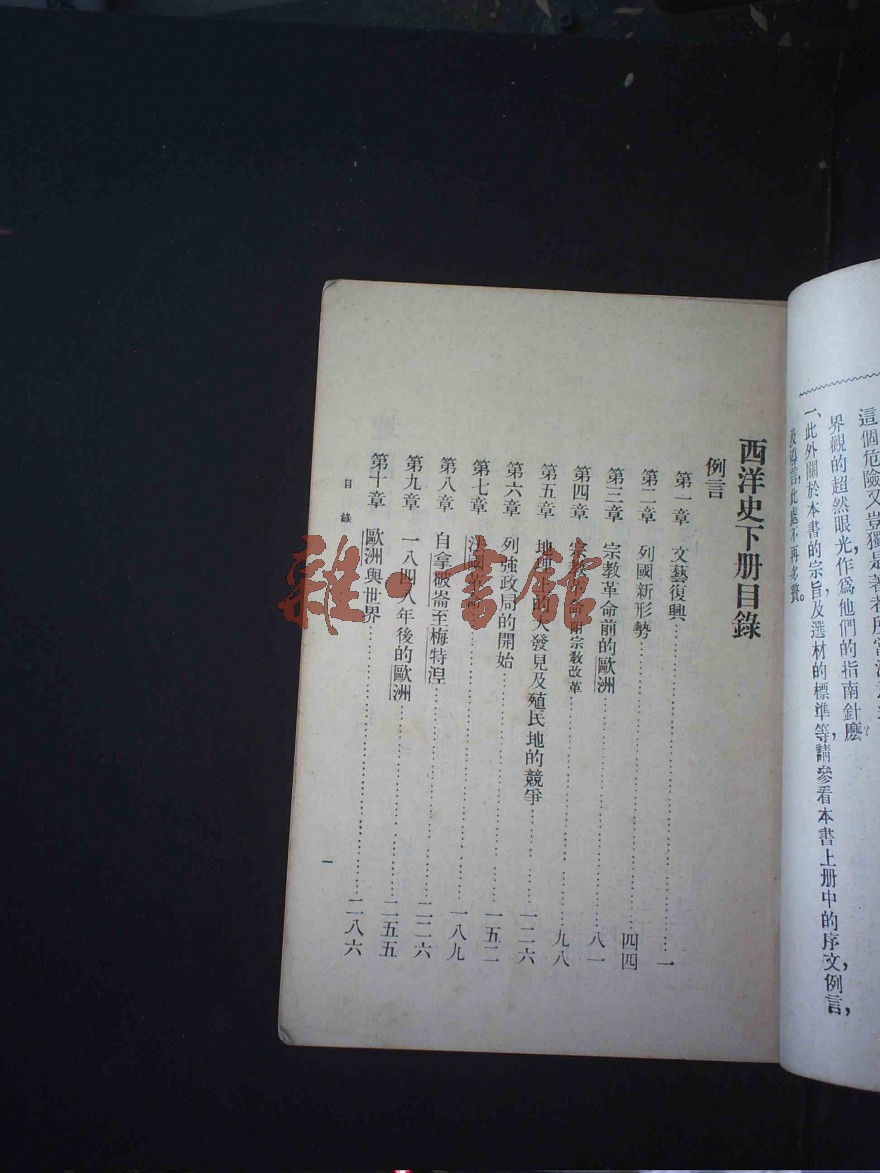 這個危險又豈獨是著者所當
界觀的超然眼光，作爲他們的指南針麼？
一、此外關於本書的宗旨及選材的標準等，請參看本書上册中的序文，例言，
及導言，此處不再多贅。
西洋史下册目錄
例言
第一章 文藝復興……一
第二章 列國新形勢……四四
第三章 宗教革命前的歐洲……八一
第四章 宗教革命附宗敎改革……九八
第五章 地理上的大發見及殖民地的競爭……一二六
第六章 列強政局的開始……一五二
第七章 法國革命……一八九
第八章 自拿破崙至梅特涅……二二六
第九章 一八四八年後的歐洲……二五五
第十章 歐洲與世界……二八六
目錄
一
雜·書館